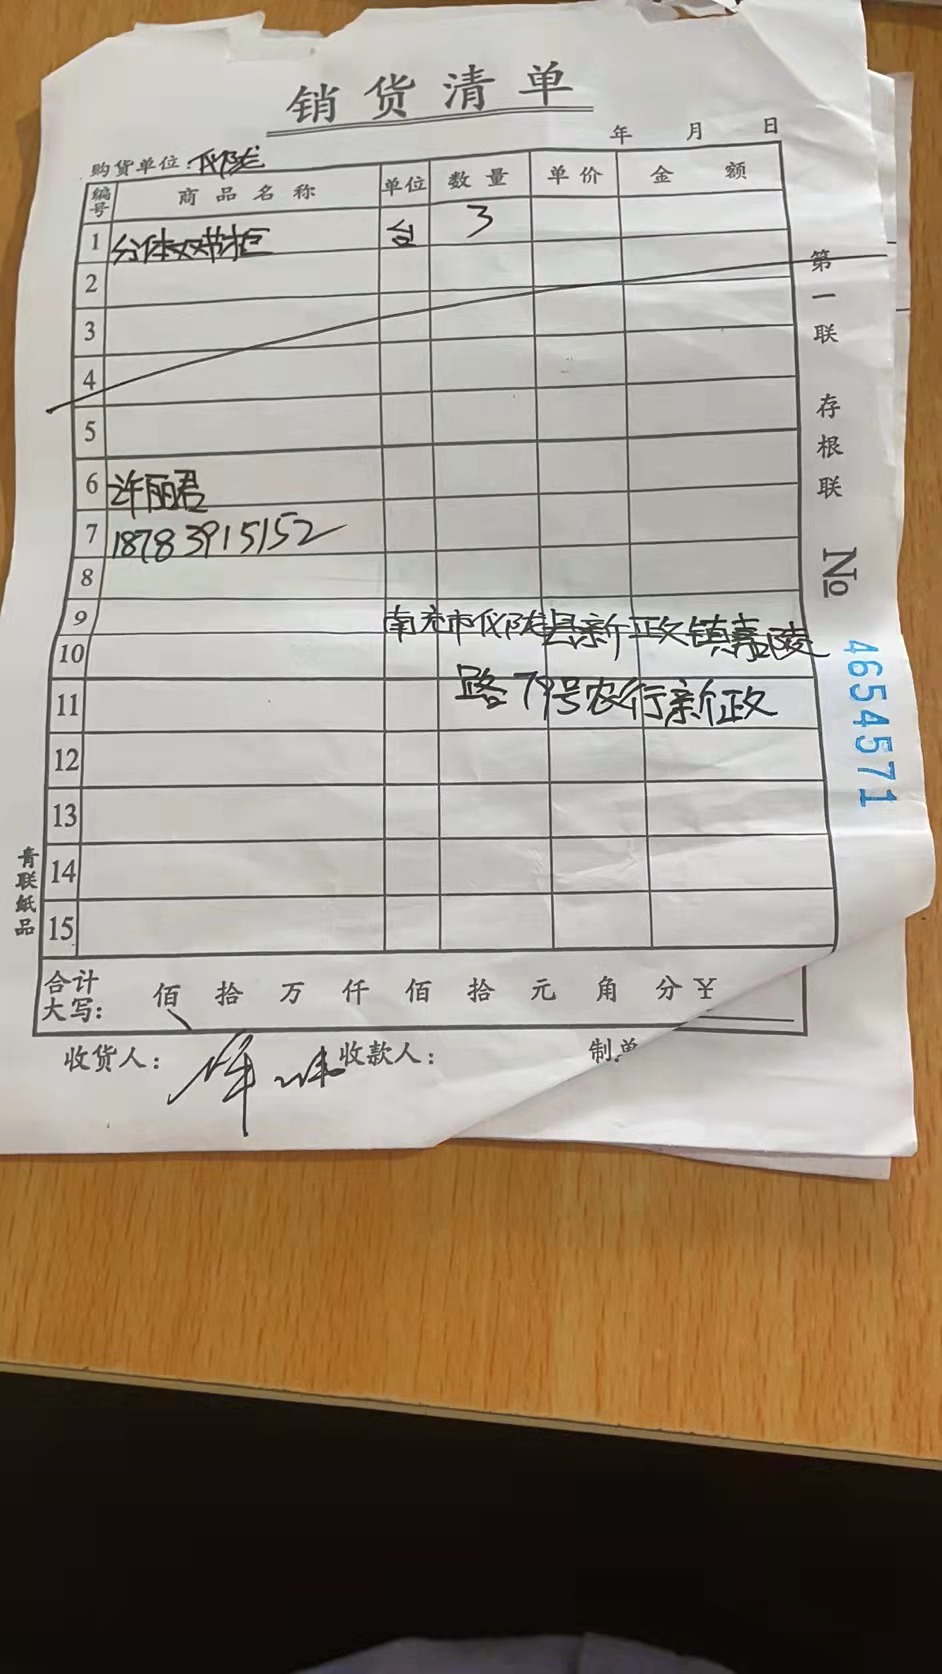 销货清单
年 月 日
购货单位:仪陇
编号 商品名称 单位 数量 单价 金额
1 分体双节柜 台 3
2
3
4
5
6 许丽君
7 18783915152
8
9 南充市仪陇县新政镇嘉陵
10
11 路79号农行新政
12
13
14
15
合计
大写: 佰 拾 万 仟 佰 拾 元 角 分 ¥
收货人: 收款人: 制单
第一联 存根联
No 4654571
青联纸品